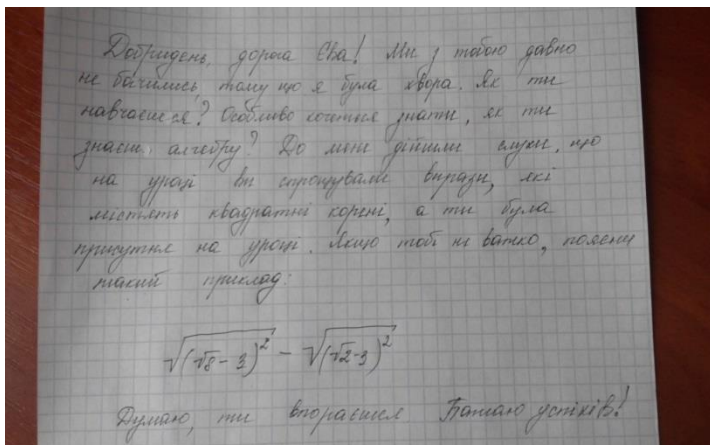 Добридень, дорога Єва! Ми з тобою давно
не бачились, тому що я була хвора. Як ти
навчаєшся? Особливо хочеться знати, як ти
знаєш алгебру? До мене дійшли слухи, що
на уроці ви спрощували вирази, які
містять квадратні корені, а ти була
присутня на уроці. Якщо тобі не важко, поясни
такий приклад:
√(√8 - 3)² - √(√2 - 3)²
Думаю, ти впораєшся Бажаю успіхів!